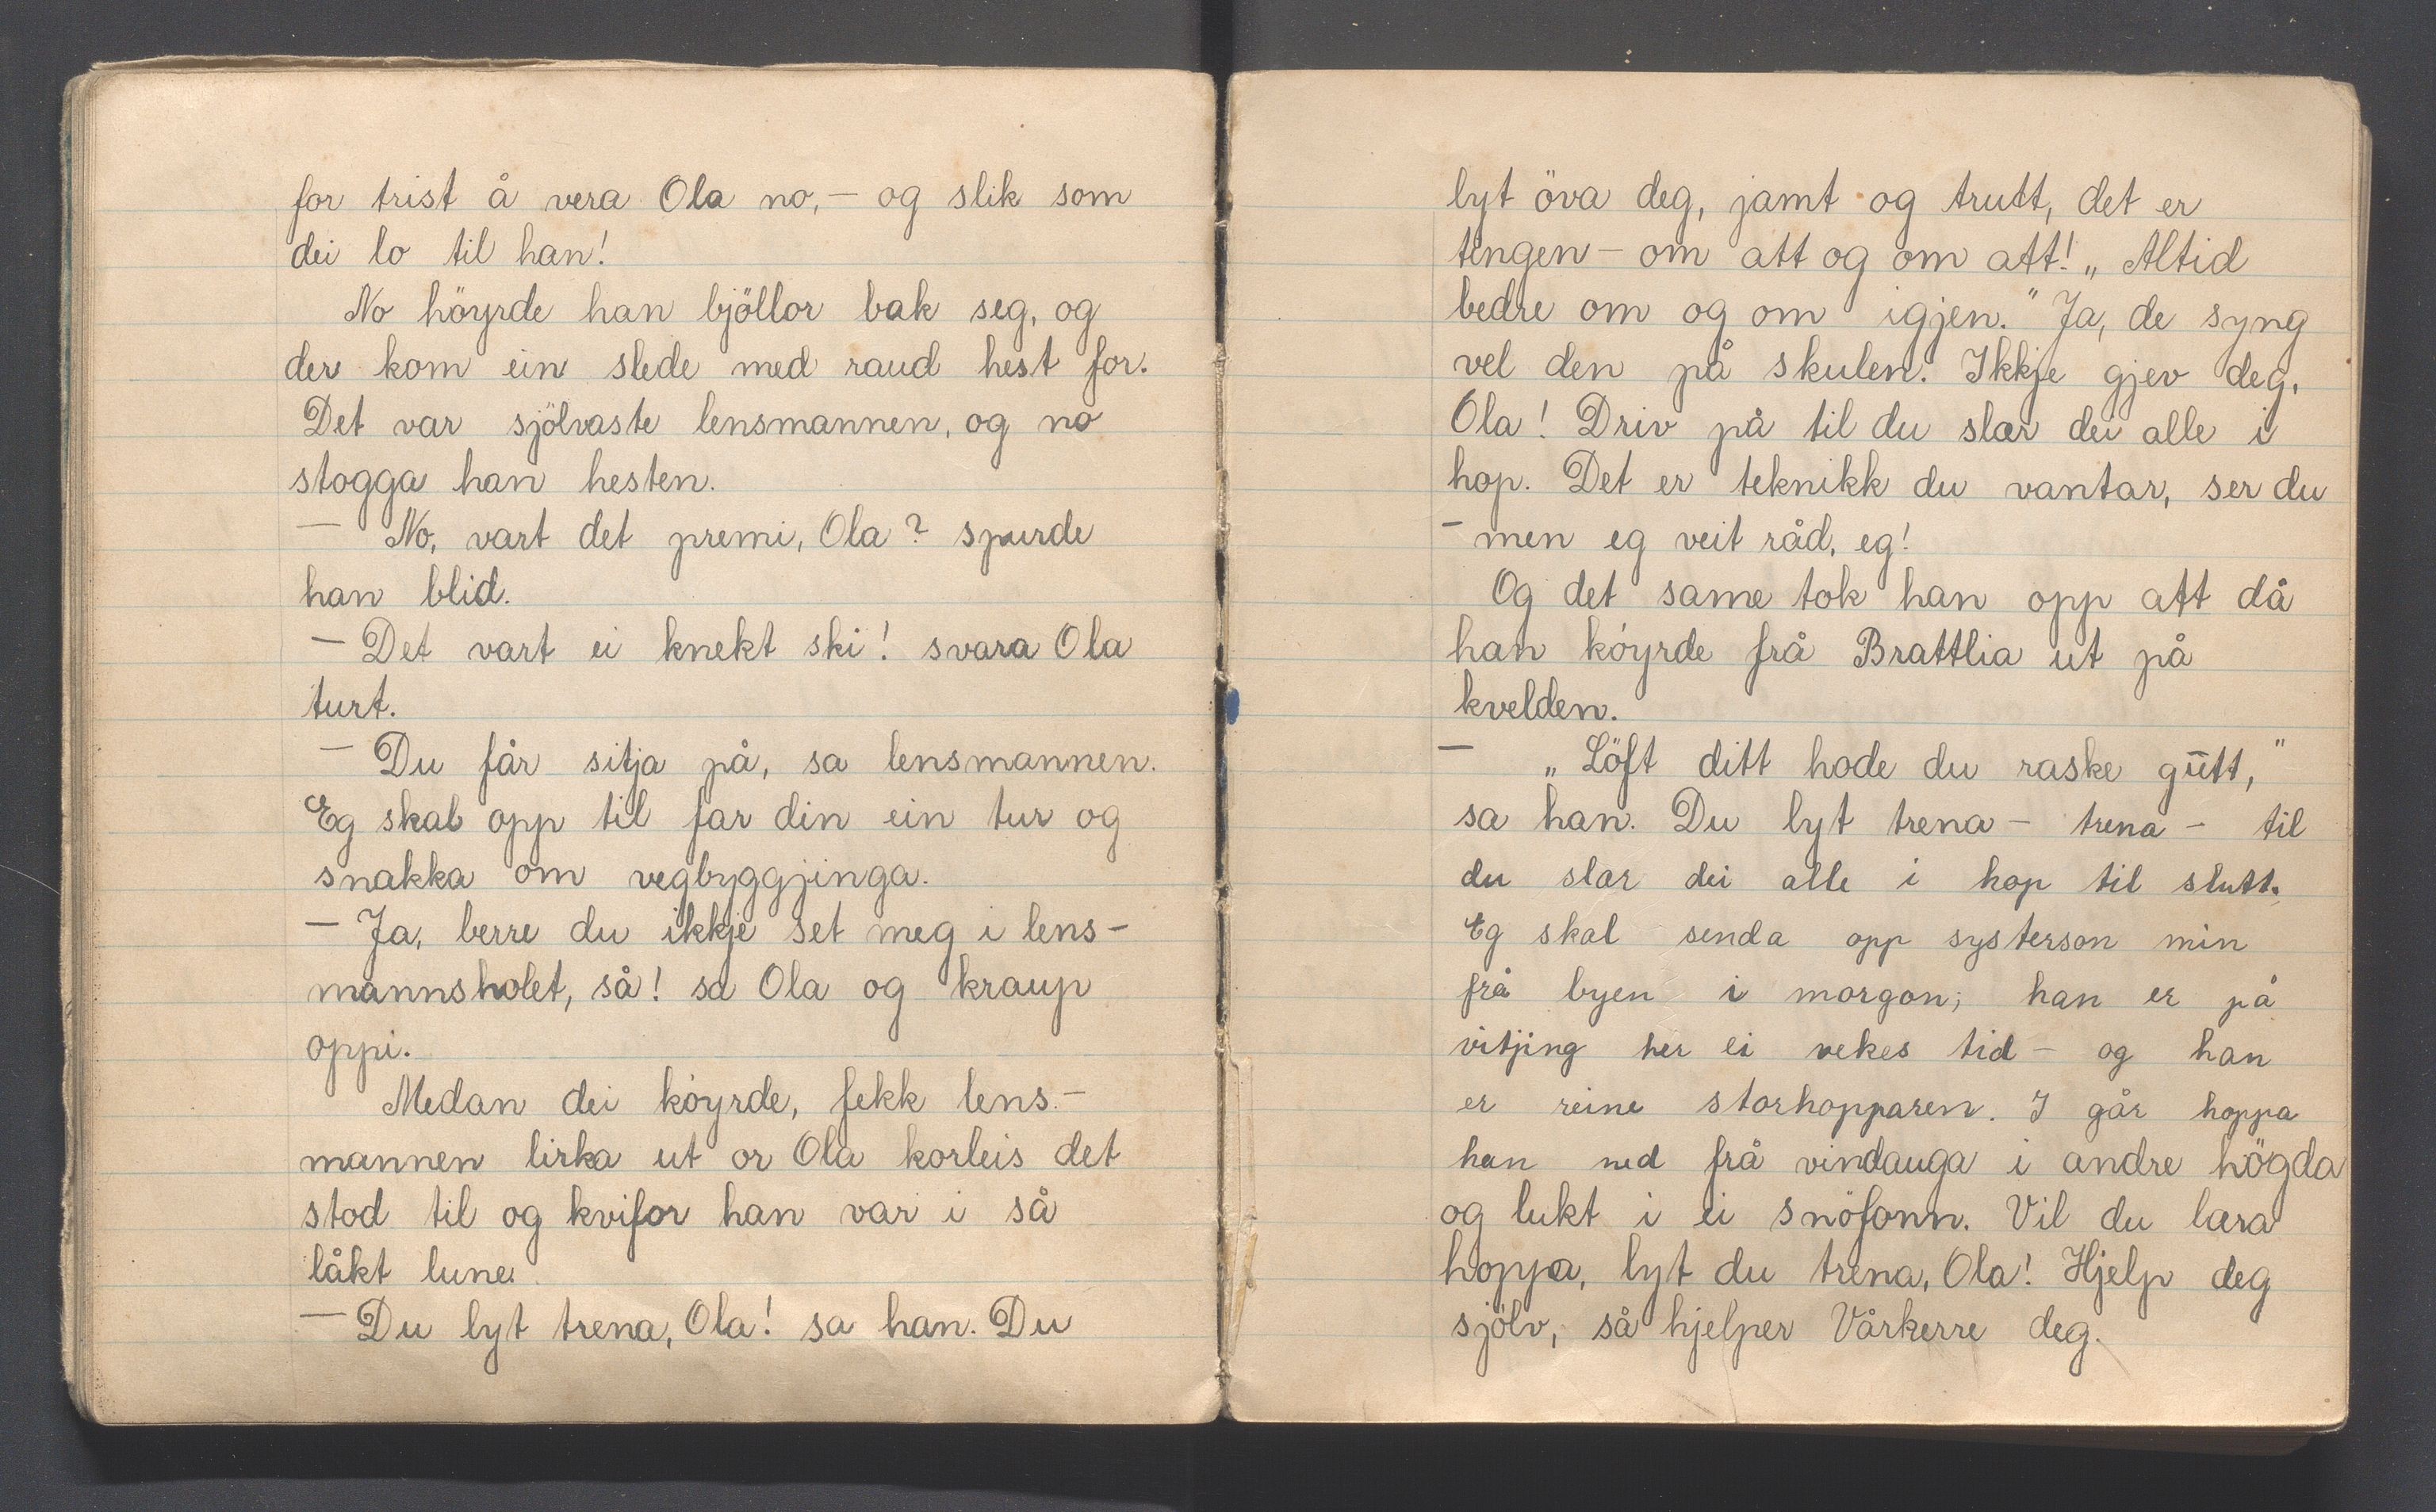 for trist å vera Ola no, – og slik som
dei lo til han!
No höyrde han bjöllor bak seg, og
der kom ein slede med raud hest for.
Det var sjölvaste lensmannen, og no
stogga han hesten.
– No, vart det premi, Ola? spurde
han blid.
– Det vart ei knekt ski! svara Ola
turt.
– Du får sitja på, sa lensmannen.
Eg skal opp til far din ein tur og
snakka om vegbyggjinga.
– Ja, berre du ikkje set meg i lens-
mannsholet, så! sa Ola og kraup
oppi.
Medan dei köyrde, fekk lens-
mannen lirka ut or Ola korleis det
stod til og kvifor han var i så
låkt lune.
– Du lyt trena, Ola! sa han. Du
lyt öva deg, jamt og trutt, det er
tingen – om att og om att! „Altid
bedre om og om igjen." Ja, de syng
vel den på skulen. Ikkje gjev deg,
Ola! Driv på til du slær dei alle i
hop. Det er teknikk du vantar, ser du
– men eg veit råd, eg!
Og det same tok han opp att då
han köyrde frå Brattlia ut på
kvelden.
– „Löft ditt hode du raske gūtt,"
sa han. Du lyt trena – trena – til
du slær dei alle i hop til slutt.
Eg skal senda opp systerson min
frå byen i morgon; han er på
vitjing her ei vekes tid – og han
er reine storhopparen. I går hoppa
han ned frå vindauga i andre högda
og lukt i ei snöfonn. Vil du læra
hoppa, lyt du trena, Ola! Hjelp deg
sjölv, så hjelper Vårherre deg.